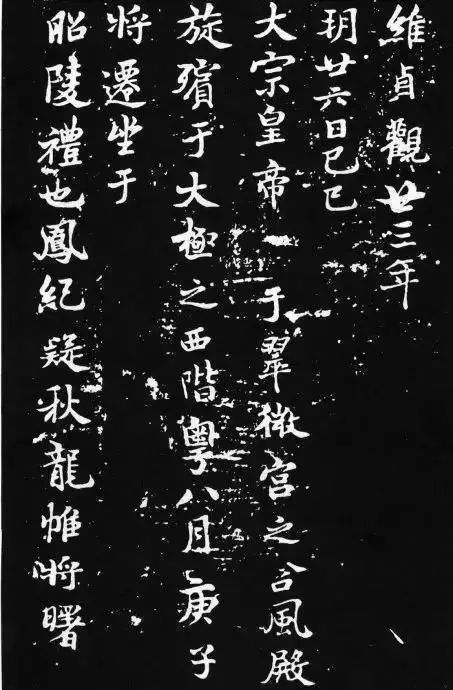 維貞觀廿三年
朔廿六日己巳
大宗皇帝于翠微宮之含風殿
旋殯于大極之西階粵八月庚子
將遷坐于
昭陵禮也鳳紀疑秋龍帷將曙